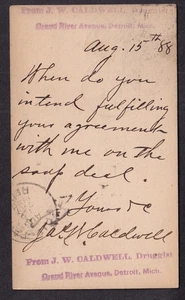 From J. W. CALDWELL, Druggist
Grand River Avenue, Detroit, Mich.
Aug. 15th 88
When do you
intend fulfilling
your agreement
with me on the
soap deal.
Yours &c
Jas W Caldwell
From J. W. CALDWELL, Druggist
Grand River Avenue, Detroit, Mich.